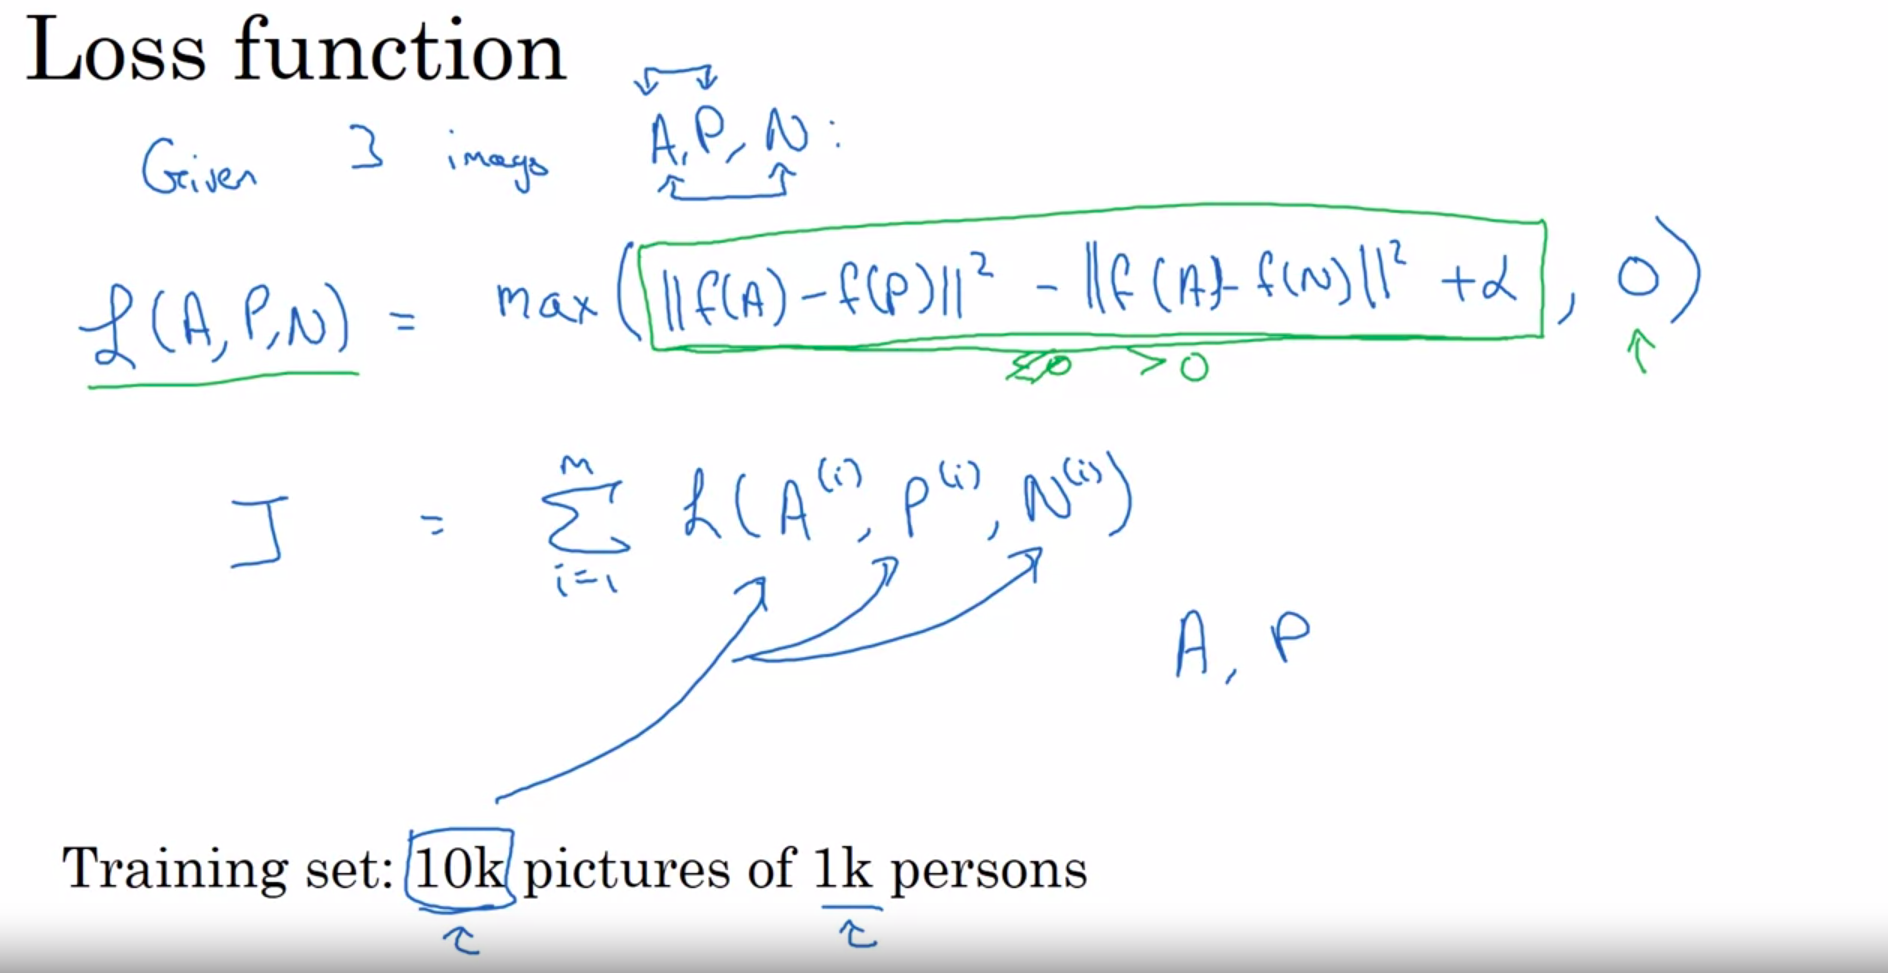 Loss function
Given 3 imags A, P, N:
ℒ(A, P, N) = max(||f(A) - f(P)||² - ||f(A) - f(N)||² + α, 0)
> 0
J = Σ_{i=1}^{M} ℒ(A^(i), P^(i), N^(i))
A, P
Training set: 10k pictures of 1k persons